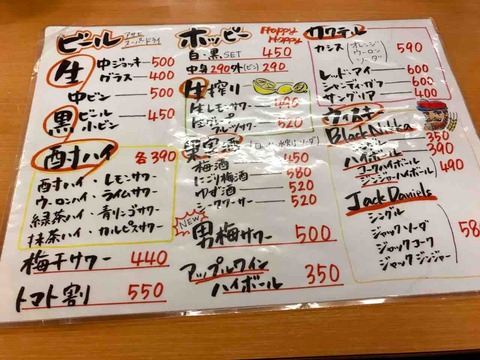 ビール アサヒ スーパードライ
生 中ジョッキー 500
グラス 400
中ビン 500
黒 ビール 小ビン 450
酎ハイ 各390
酎ハイ・レモンサワー
ウーロンハイ・ライムサワー
緑茶ハイ・青リンゴサワー
抹茶ハイ・カルピスサワー
梅干サワー 440
トマト割 550
ホッピー Happy Happy
白・黒SET 450
中身290 外(ビン)290
生搾り
生レモンサワー 490
生グレープフルーツサワー 520
果実酒
梅酒 450
にごり梅酒 580
ゆず酒 520
シークワーサー 520
NEW
男梅サワー 500
アップルワイン
ハイボール 350
カクテル
カシス (オレンジ ウーロン ソーダ) 590
レッド・アイ 600
シャンディ・ガフ 600
サングリア 400
ウィスキー
Black Nikka
シングル 350
ハイボール 390
コークハイボール
ジンジャーハイボール 490
Jack Daniels
シングル
ジャックソーダ
ジャックコーク
ジャックジンジャー